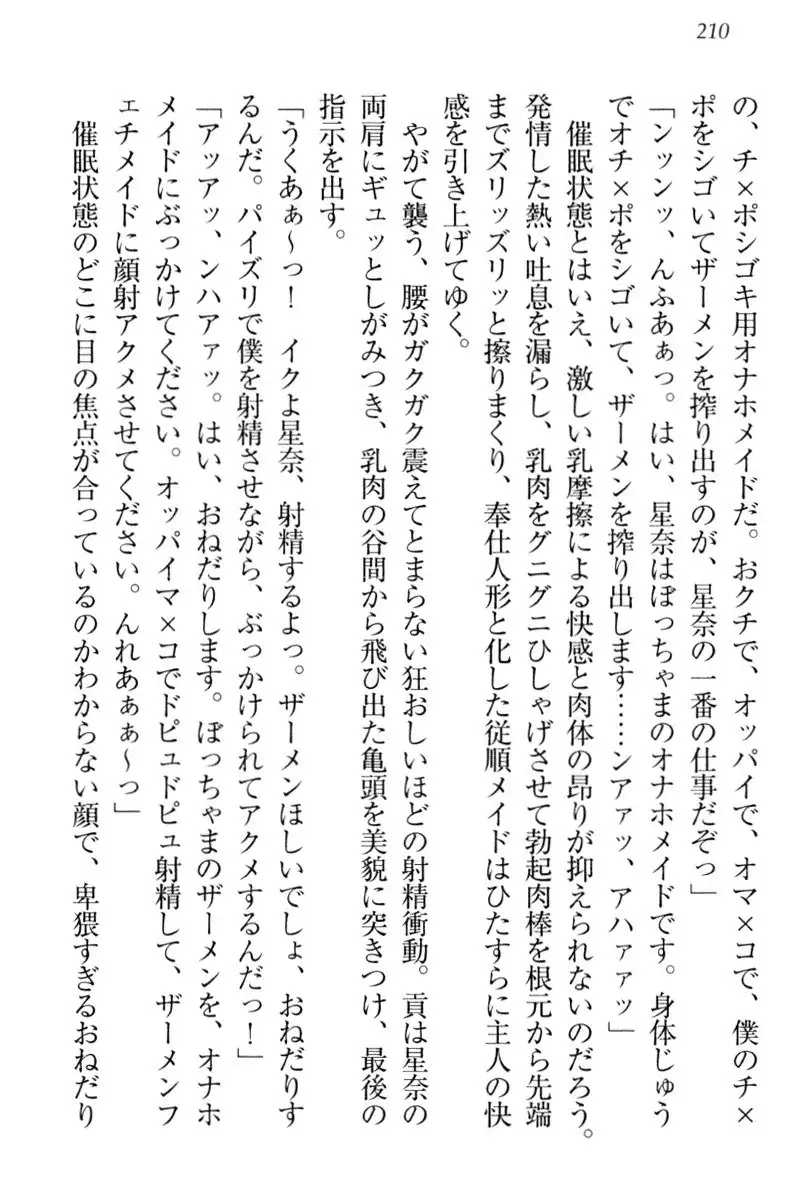 210
の、チ×ポシゴキ用オナホメイドだ。おクチで、オッパイで、オマ×コで、僕のチ×
ポをシゴいてザーメンを搾り出すのが、星奈の一番の仕事だぞっ」
「ンッンッ、んふあぁっ。はい、星奈はぼっちゃまのオナホメイドです。身体じゅう
でオチ×ポをシゴいて、ザーメンを搾り出します……ンアァッ、アハァァッ」
催眠状態とはいえ、激しい乳摩擦による快感と肉体の昂りが抑えられないのだろう。
発情した熱い吐息を漏らし、乳肉をグニグニひしゃげさせて勃起肉棒を根元から先端
までズリッズリッと擦りまくり、奉仕人形と化した従順メイドはひたすらに主人の快
感を引き上げてゆく。
やがて襲う、腰がガクガク震えてとまらない狂おしいほどの射精衝動。貢は星奈の
両肩にギュッとしがみつき、乳肉の谷間から飛び出た亀頭を美貌に突きつけ、最後の
指示を出す。
「うくあぁ～っ！　イクよ星奈、射精するよっ。ザーメンほしいでしょ、おねだりす
るんだ。パイズリで僕を射精させながら、ぶっかけられてアクメするんだっ！」
「アッアッ、ンハアァッ。はい、おねだりします。ぼっちゃまのザーメンを、オナホ
メイドにぶっかけてください。オッパイマ×コでドピュドピュ射精して、ザーメンフ
ェチメイドに顔射アクメさせてください。んれあぁぁ～っ」
催眠状態のどこに目の焦点が合っているのかわからない顔で、卑猥すぎるおねだり